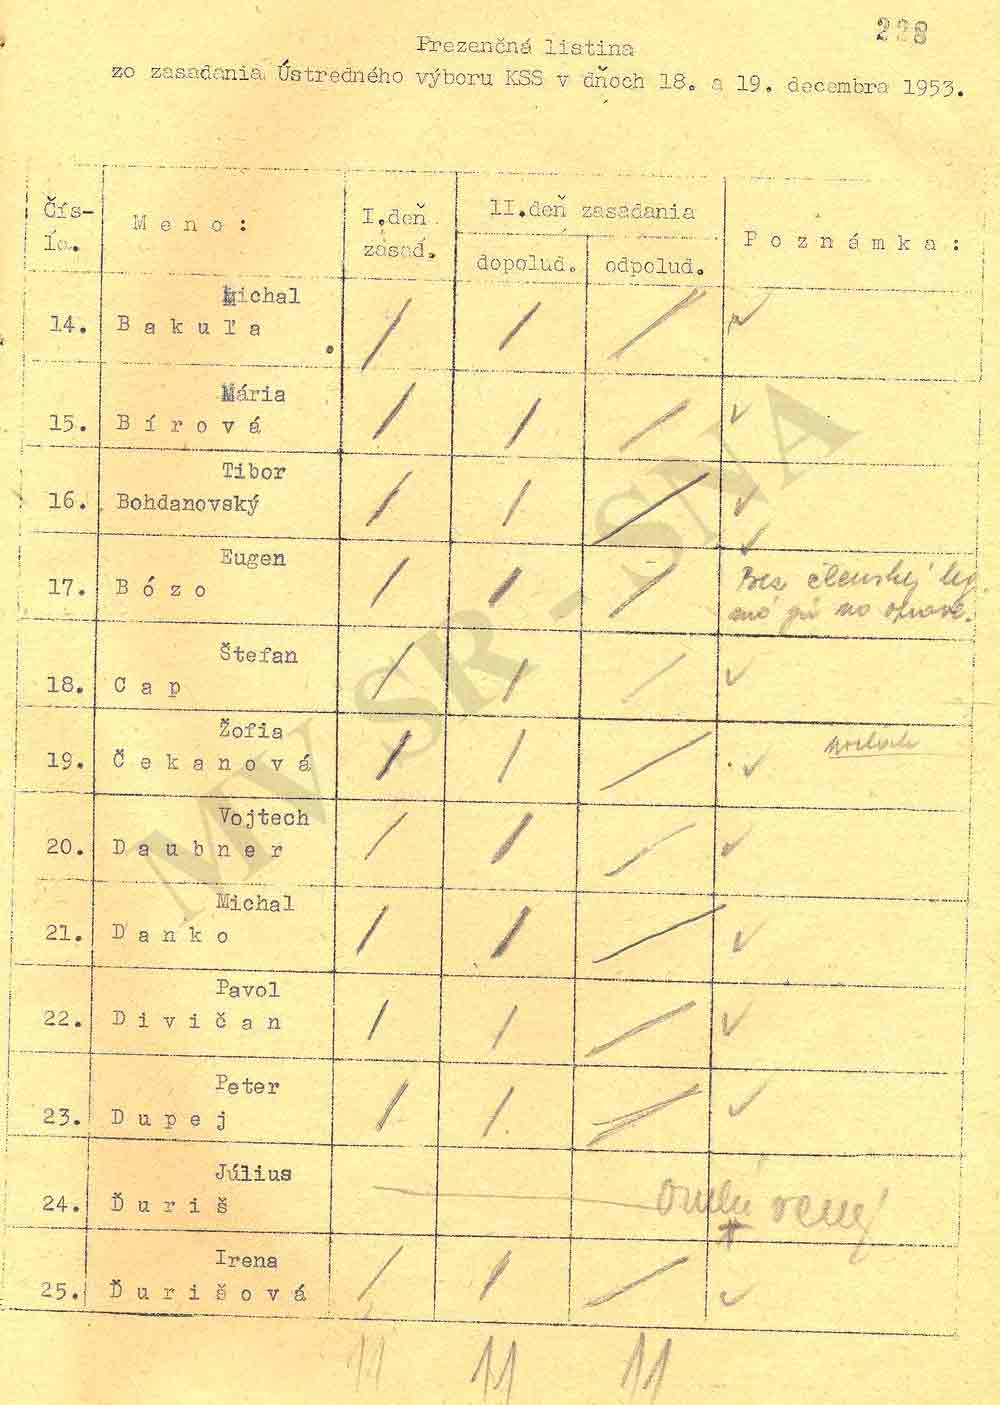 228
Prezenčná listina
zo zasadania Ústredného výboru KSS v dňoch 18. a 19. decembra 1953.
Čís-
lo.
Meno:
I.deň
zásad.
II.deň zasadania
dopolud.
odpolud.
Poznámka:
Michal
14. Bakuľa
Mária
15. Bírová
Tibor
16. Bohdanovský
Eugen
17. Bózo
Bez členskej leg.
má ju na oprave.
Štefan
18. Cap
Žofia
19. Čekanová
Vojtech
20. Daubner
Michal
21. Danko
Pavol
22. Divičan
Peter
23. Dupej
Július
24. Ďuriš
Omluvený
Irena
25. Ďurišová
11 11 11
MV SR - SNA